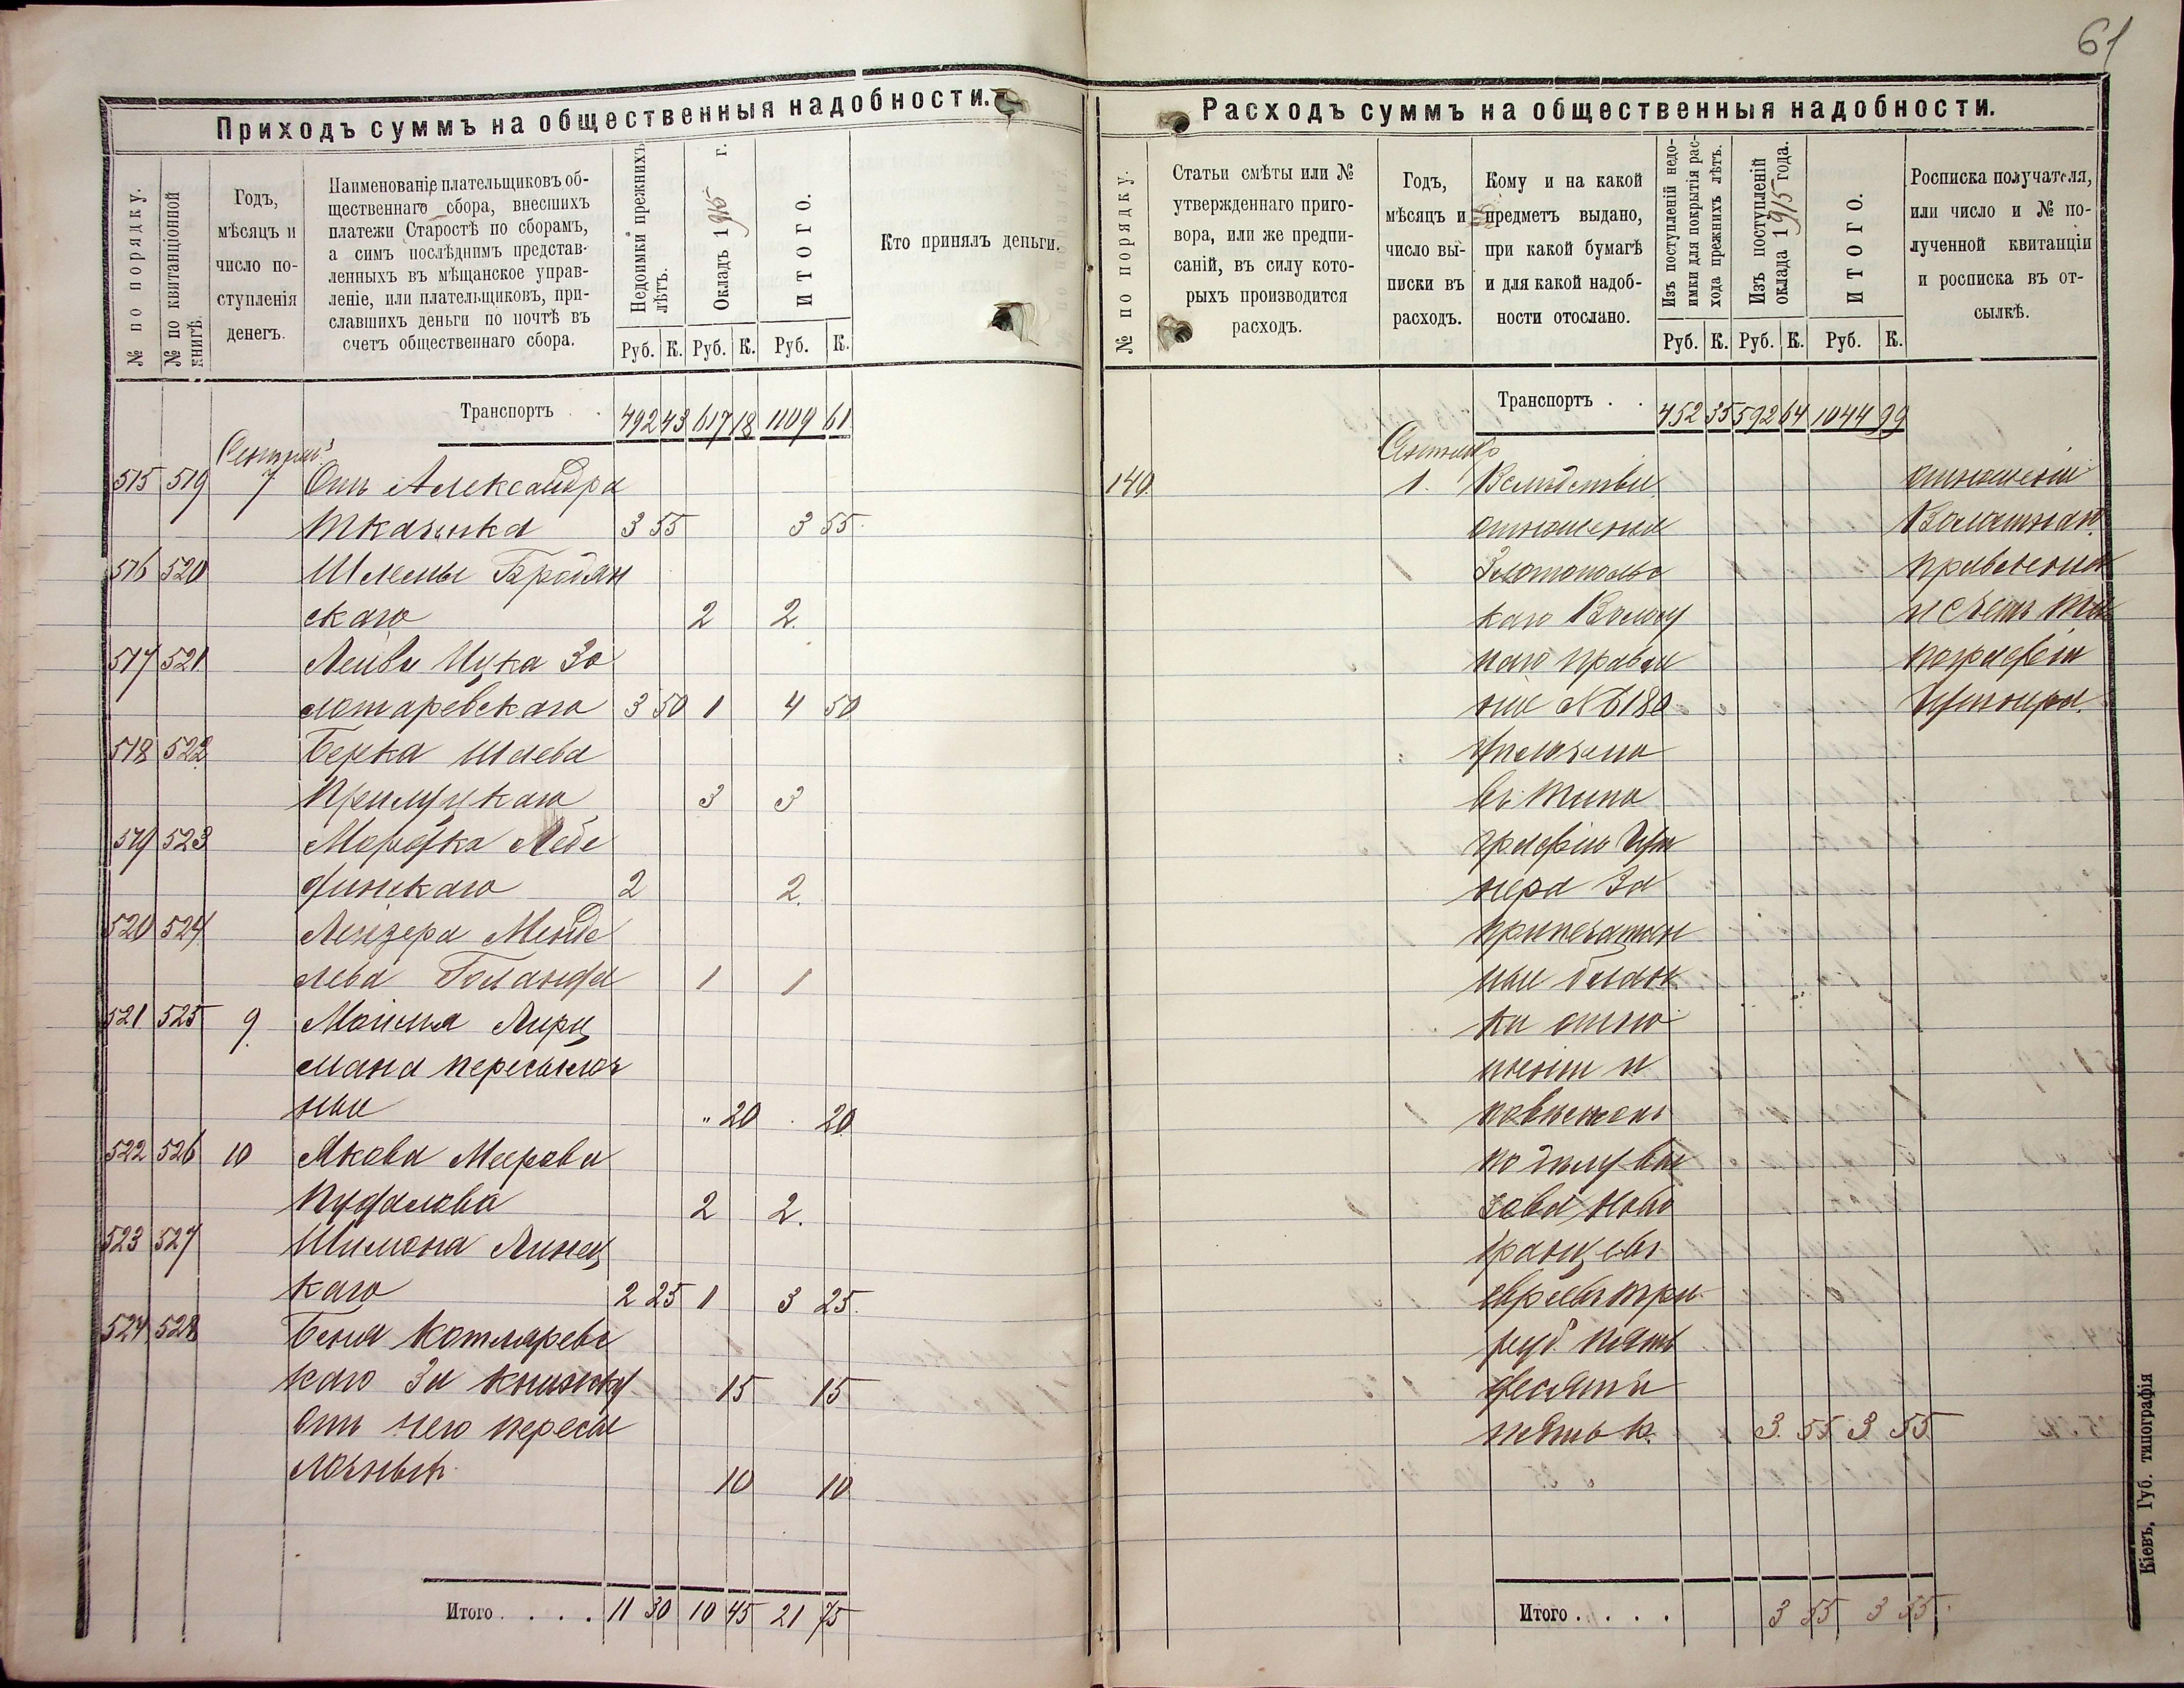 61
Приходъ суммъ на общественныя надобности.
№ по порядку.
№ по квитанціонной книгѣ.
Годъ,
мѣсяцъ и
число по-
ступленія
денегъ.
Наименованіе плательщиковъ об-
щественнаго сбора, внесшихъ
платежи Старостѣ по сборамъ,
а симъ послѣднимъ представ-
ленныхъ въ мѣщанское управ-
леніе, или плательщиковъ, при-
славшихъ деньги по почтѣ въ
счетъ общественнаго сбора.
Недоимки прежнихъ
лѣтъ.
Окладъ 1915 г.
ИТОГО.
Руб. К. Руб. К. Руб. К.
Кто принялъ деньги.
Транспортъ . . 492 43 617 18 1109 61
515 519 7 Отъ Александра
Ткаченка 3 55 3 55
516 520 Шлемы Бродян
скаго 2 2.
517 521 Лейви Ицка Зо
лотаревскаго 3 50 1 4 50
518 522 Берка Шаева
Прилуцкаго 3 3
519 523 Мордка Лебе
динскаго 2 2.
520 524 Лейзера Менде
лева Голанда 1 1
521 525 9. Мойсея Лирц
мана пересылоч
ныя " 20 20
522 526 10 Якова Меерова
Пудалова 2 2.
523 527 Шимона Линец
каго 2 25 1 3 25.
524 528 Беня Котляревс
каго за книжку 15 15
Отъ него пересы
лочныхъ 10 10
Итого . . . . 11 30 10 45 21 75
Расходъ суммъ на общественныя надобности.
№ по порядку.
Статьи смѣты или №
утвержденнаго приго-
вора, или же предпи-
саній, въ силу кото-
рыхъ производится
расходъ.
Годъ,
мѣсяцъ и
число вы-
писки въ
расходъ.
Кому и на какой
предметъ выдано,
при какой бумагѣ
и для какой надоб-
ности отослано.
Изъ поступленій недо-
имки для покрытія рас-
хода прежнихъ лѣтъ.
Изъ поступленій
оклада 1915 года.
ИТОГО.
Руб. К. Руб. К. Руб. К.
Росписка получателя,
или число и № по-
лученной квитанціи
и росписка въ от-
сылкѣ.
Транспортъ . . 452 35 592 64 1044 99
140. 1. Вслѣдствіи отношеніи
отношенія Волостнаго
Златопольс правленія
каго Волост и счетъ Ти
наго правле пографіи
нія № 6180
уплачено
въ Типо
графію
за
припечатан
ные блан
ки отно
шеніи и
повѣстокъ
по дѣлу вы
зова ново
бранцевъ
евреевъ три
руб. пять
десятъ
пять к. 3. 55 3 55
Итого . . . . 3 55 3 55.
Кіевъ, Губ. типографія